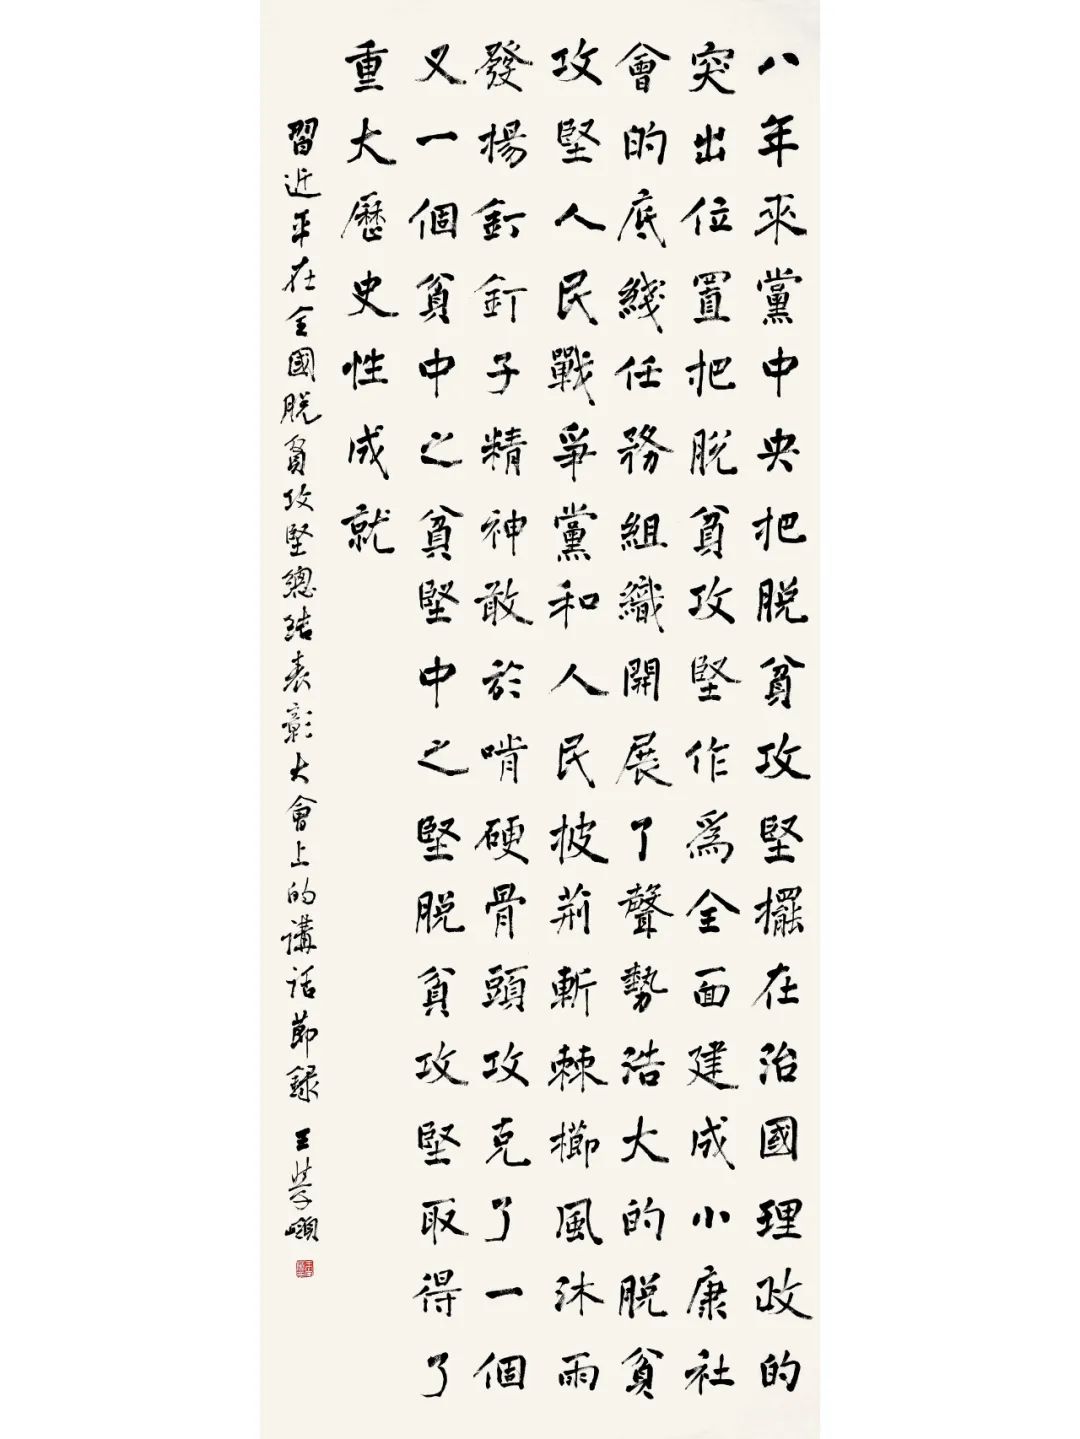 八年來黨中央把脱貧攻堅擺在治國理政的
突出位置把脱貧攻堅作爲全面建成小康社
會的底綫任務組織開展了聲勢浩大的脱貧
攻堅人民戰爭黨和人民披荊斬棘櫛風沐雨
發揚釘釘子精神敢於啃硬骨頭攻克了一個
又一個貧中之貧堅中之堅脱貧攻堅取得了
重大歷史性成就
習近平在全國脱貧攻堅總結表彰大會上的講話節録 王學嶺